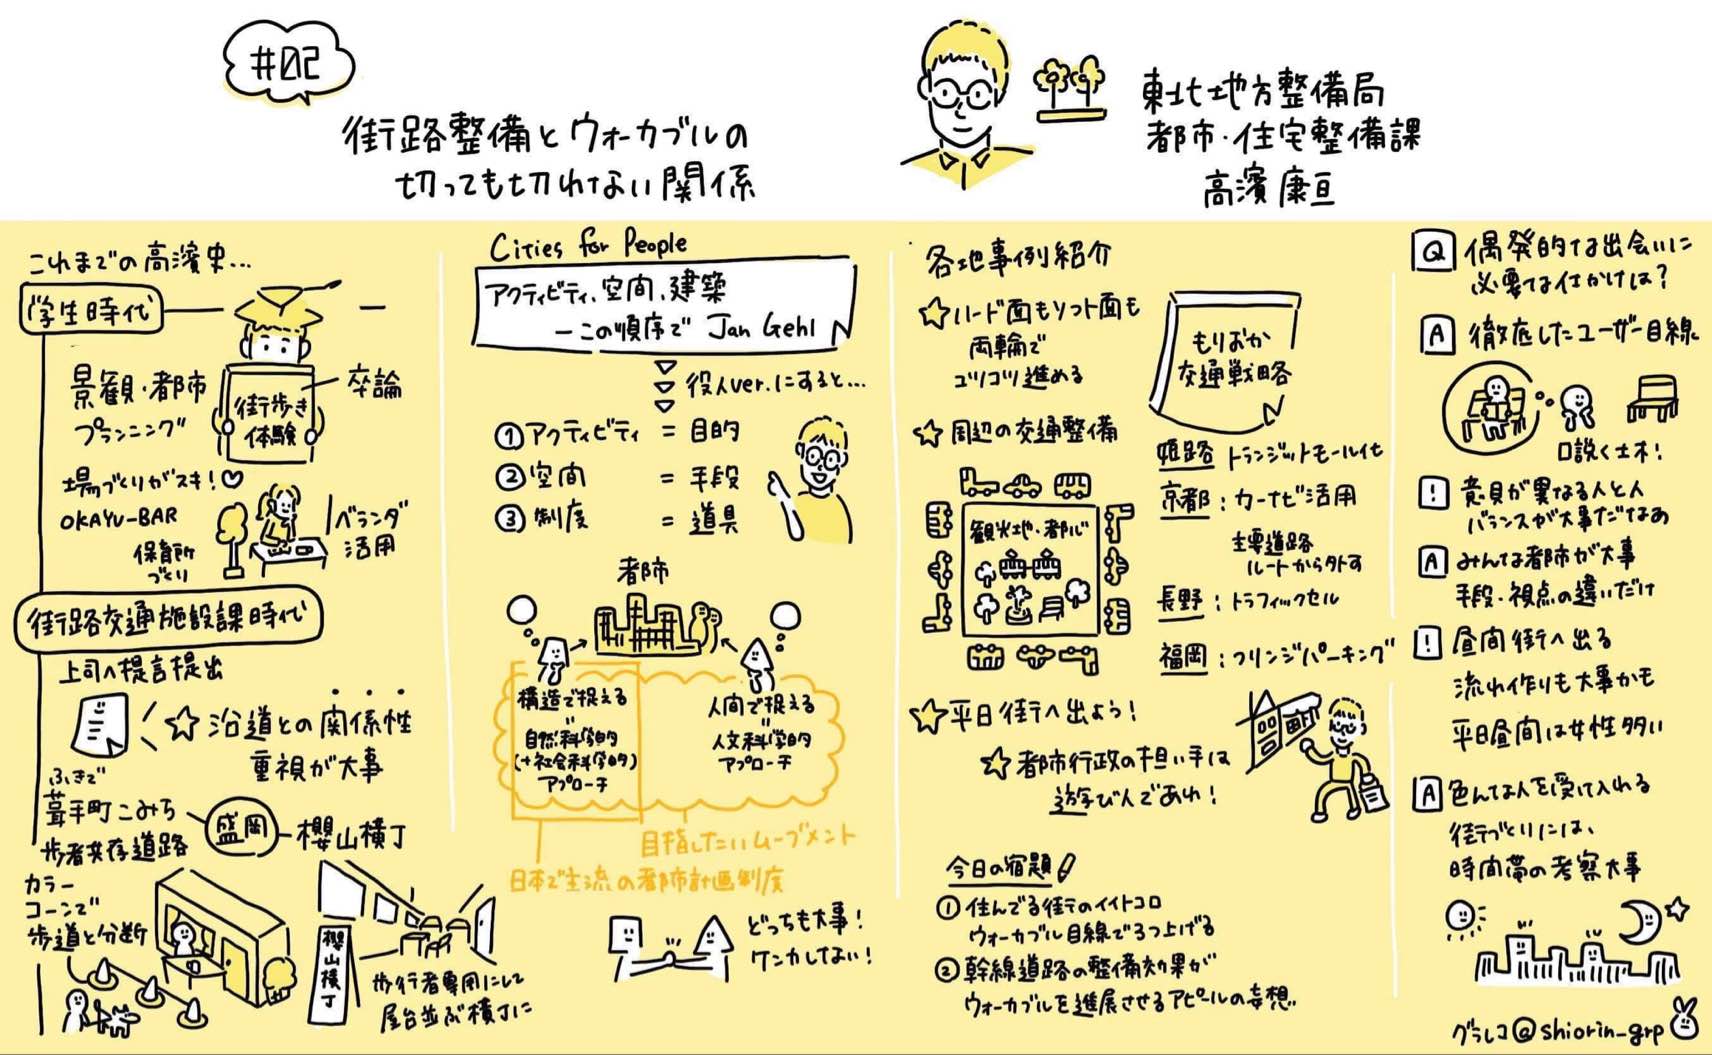 #02
街路整備とウォーカブルの
切っても切れない関係
東北地方整備局
都市・住宅整備課
高濱 康亘
これまでの高濱史…
学生時代
景観・都市
プランニング
街歩き
体験
卒論
場づくりがスキ!♡
OKAYU-BAR
保育所
づくり
ベランダ
活用
街路交通施設課時代
上司へ提言提出
☆沿道との関係性
重視が大事
ふきで
葺手町こみち
歩者共存道路
盛岡
櫻山横丁
カラー
コーンで
歩道と分断
櫻山横丁
歩行者専用にして
屋台並ぶ横丁に
Cities for People
アクティビティ、空間、建築
ーこの順序で Jan Gehl
役人ver.にすると…
①アクティビティ = 目的
②空間 = 手段
③制度 = 道具
都市
構造で捉える
=
自然科学的
(+社会科学的)
アプローチ
人間で捉える
=
人文科学的
アプローチ
目指したいムーブメント
日本で主流の都市計画制度
どっちも大事!
ケンカしない!
各地事例紹介
☆ハード面もソフト面も
両輪で
コツコツ進める
もりおか
交通戦略
☆周辺の交通整備
観光地・都心
姫路 トランジットモール化
京都:カーナビ活用
主要道路
ルートから外す
長野:トラフィックセル
福岡:フリンジパーキング
☆平日街へ出よう!
☆都市行政の担い手は
遊び人であれ!
今日の宿題
①住んでる街のイイトコロ
ウォーカブル目線で3つ上げる
②幹線道路の整備効果が
ウォーカブルを進展させるアピールの妄想..
Q 偶発的な出会いに
必要な仕かけは?
A 徹底したユーザー目線
口説く土木!
! 意見が異なる人と人
バランスが大事だなあ
A みんな都市が大事
手段・視点の違いだけ
! 昼間街へ出る
流れ作りも大事かも
平日昼間は女性多い
A 色んな人を受け入れる
街づくりには、
時間帯の考察大事
グラレコ@shiorin_grp